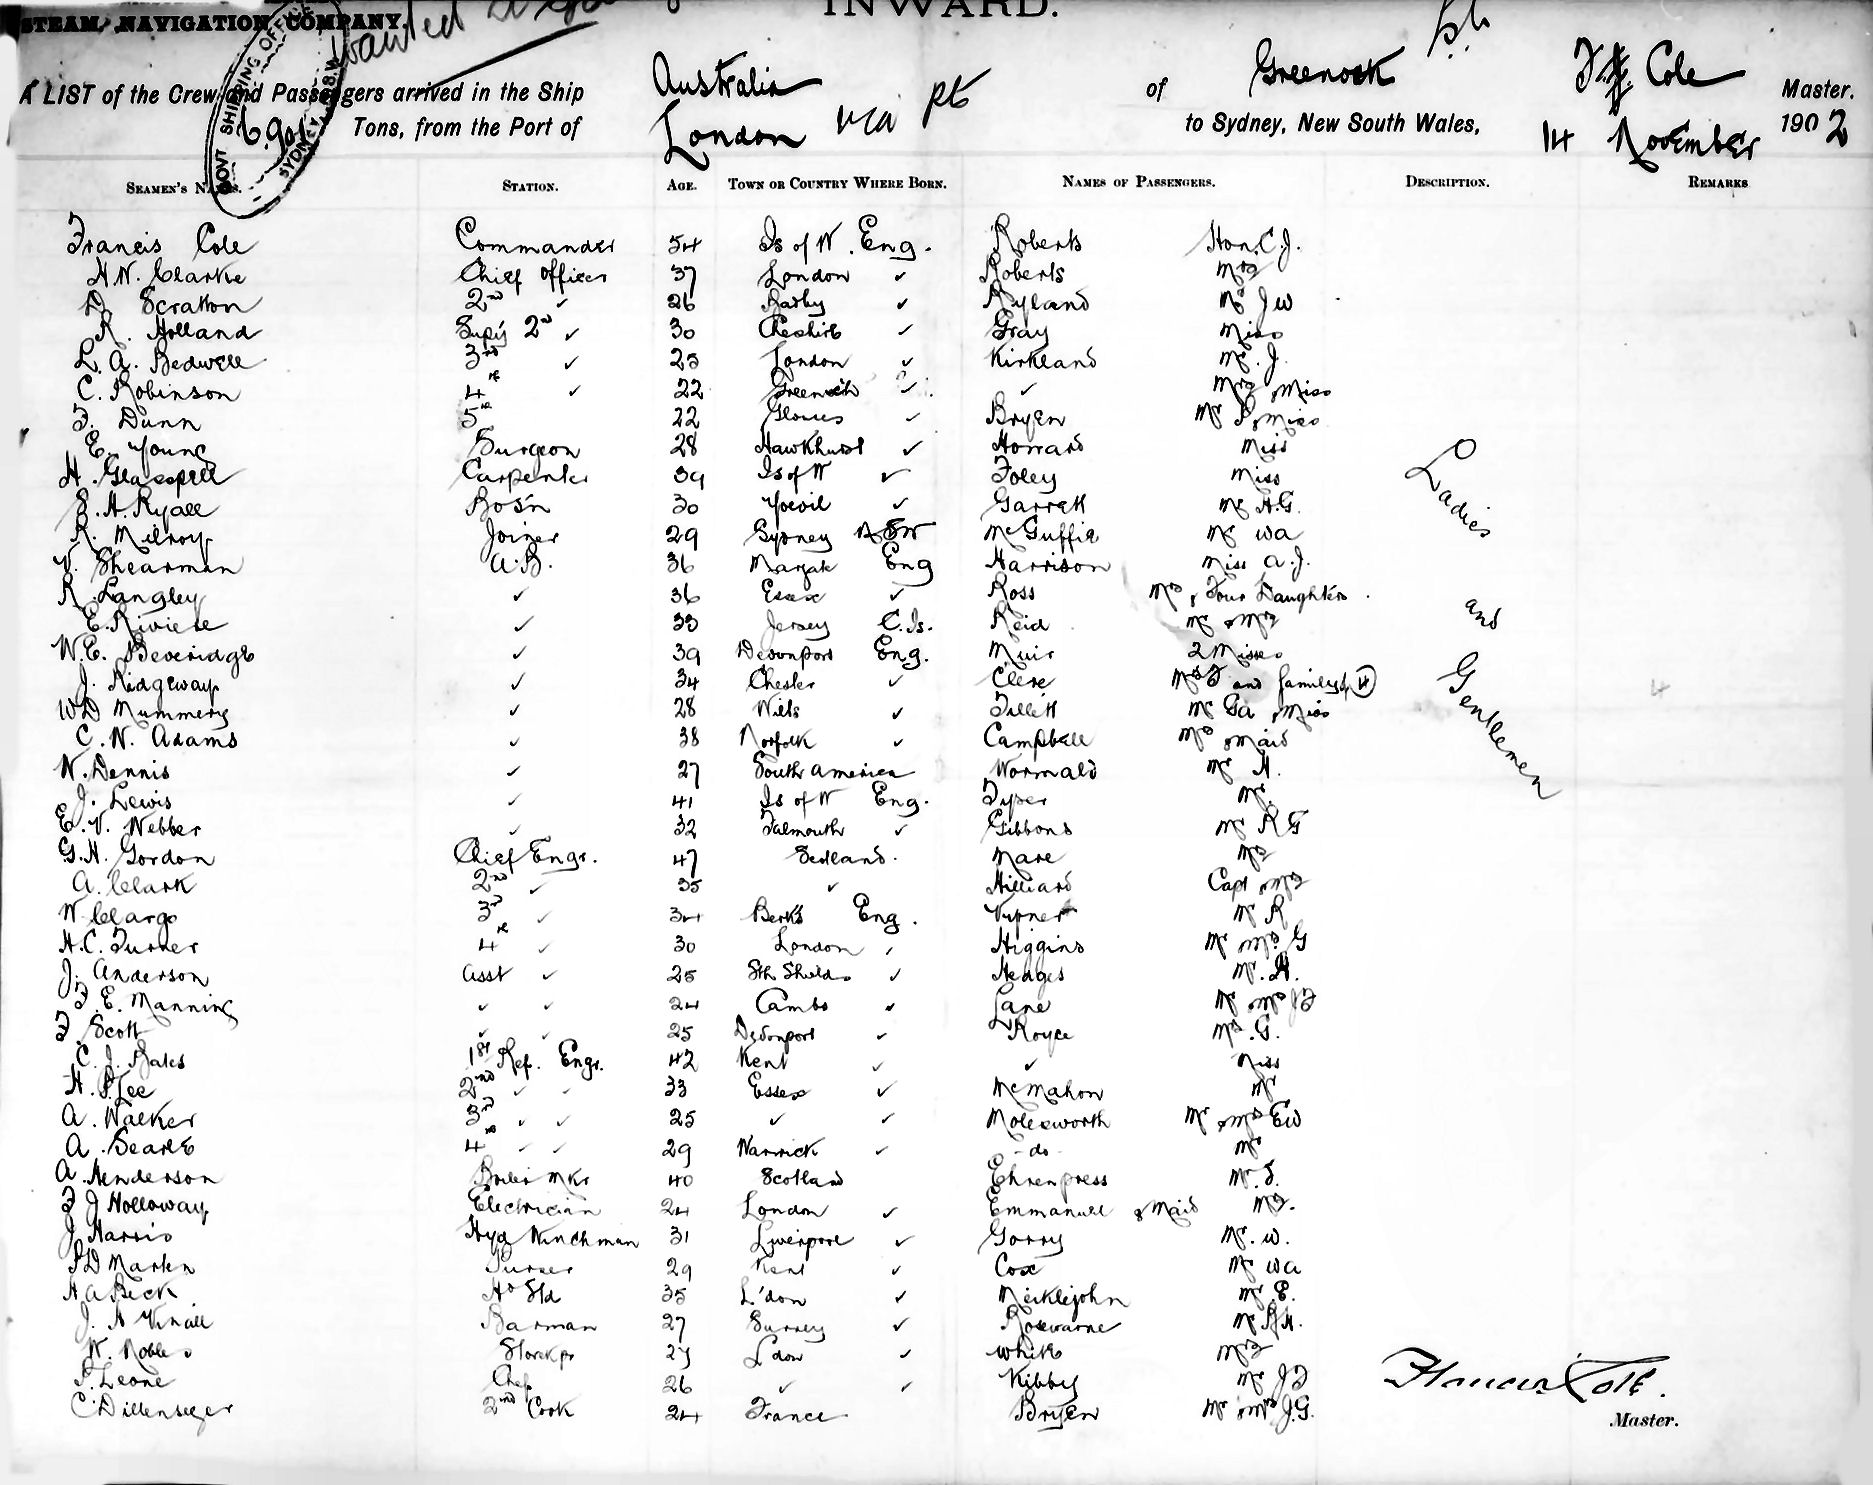 INWARD.
STEAM NAVIGATION COMPANY.
wanted
GOVT SHIPPING OFFICE SYDNEY N.S.W.
A LIST of the Crew and Passengers arrived in the Ship Australia of Greenock F Cole Master.
Tons, from the Port of London via pts to Sydney, New South Wales, 14 November 1902
SEAMEN'S NAMES. STATION. AGE. TOWN OR COUNTRY WHERE BORN. NAMES OF PASSENGERS. DESCRIPTION. REMARKS
Francis Cole Commander 54 Is of W. Eng. Roberts Hon. C.J.
H.W. Clarke Chief Officer 37 London ✓ Roberts Mrs
D. Scratton 2nd ✓ 26 Derby ✓ Ryland Mr J W
R. Holland Sup'y 2nd ✓ 30 Cheshire ✓ Gray Miss
L. A. Bedwell 3rd ✓ 25 London ✓ Kirkland Mr. J.
C. Robinson 4th ✓ 22 Greenwich ✓ ✓ Mrs & Miss
F. Dunn 5th 22 Glouces ✓ Bryen Mr & Miss
E. Young Surgeon 28 Hawkhurst ✓ Howard Miss
H. Glasspell Carpenter 39 Is of W ✓ Foley Miss
S. H. Ryall Bos'n 30 Yeovil ✓ Garrett Mr H.G.
R. Milroy Joiner 29 Sydney NSW McGuffie Mr WA
V. Shearman A.B. 36 Margate Eng Harrison Miss A.J.
R. Langley ✓ 36 Essex ✓ Ross Mrs, Four Daughters
E. Riviere ✓ 33 Jersey C. Is. Reid Mr & Mrs
W.E. Beveridge ✓ 39 Devonport Eng. Muir 2 Misses
J. Ridgeway ✓ 34 Chester ✓ Clere Mrs F and family (4)
WD Mummery ✓ 28 Wilts ✓ Tillett Mr GA & Miss
C. W. Adams ✓ 38 Norfolk ✓ Campbell Mrs & Maid
W. Dennis ✓ 27 South America Wormald Mr H.
J. Lewis ✓ 41 Is of W Eng. Typer Mr.
E. V. Webber ✓ 32 Falmouth ✓ Gibbons Mr R G
G.H. Gordon Chief Engr. 47 Scotland. Mare Mrs
A. Clark 2nd ✓ 35 ✓ Hilliard Capt & Mrs
W. Clargo 3rd ✓ 34 Berks Eng. Turner Mr R
H.C. Turner 4th ✓ 30 London ✓ Higgins Mr & Mrs. G
J. Anderson Asst ✓ 25 Sth Shields ✓ Hedges Mr. H.
F. E. Manning ✓ ✓ 24 Cambs ✓ Lane Mr & Mrs JF
F. Scott ✓ ✓ 25 Devonport ✓ Royce Mrs. G.
C. J. Bates 1st Ref. Engr. 42 Kent ✓ ✓ Miss
H. P. Lee 2nd ✓ ✓ 33 Essex ✓ McMahon Mr
A. Walker 3rd ✓ ✓ 25 ✓ ✓ Molesworth Mr & Mrs EW
A. Searle 4th ✓ ✓ 29 Warwick ✓ - do - Mr
A. Henderson Boiler Mkr 40 Scotland Ehrenpress Mr. S.
F J Holloway Electrician 24 London ✓ Emmanuel & Maid Mrs.
J Harris Hyd Winchman 31 Liverpool ✓ Gorry Mr. W.
Marten Purser 29 Kent ✓ Cox Mr WA
H A Beck Hd Std 35 L'don ✓ Meiklejohn Mr. E.
J. A Vinall Barman 27 Surrey ✓ Rosewarne Mr RH.
W. Nobles Storekpr 27 L'don ✓ White Mrs
P. Leone Chef 26 ✓ ✓ Kibby Mr JF
C Dillenseger 2nd Cook 24 France Bryen Mr & Mrs J.G.
Ladies
and
Gentlemen
Francis Cole.
Master.